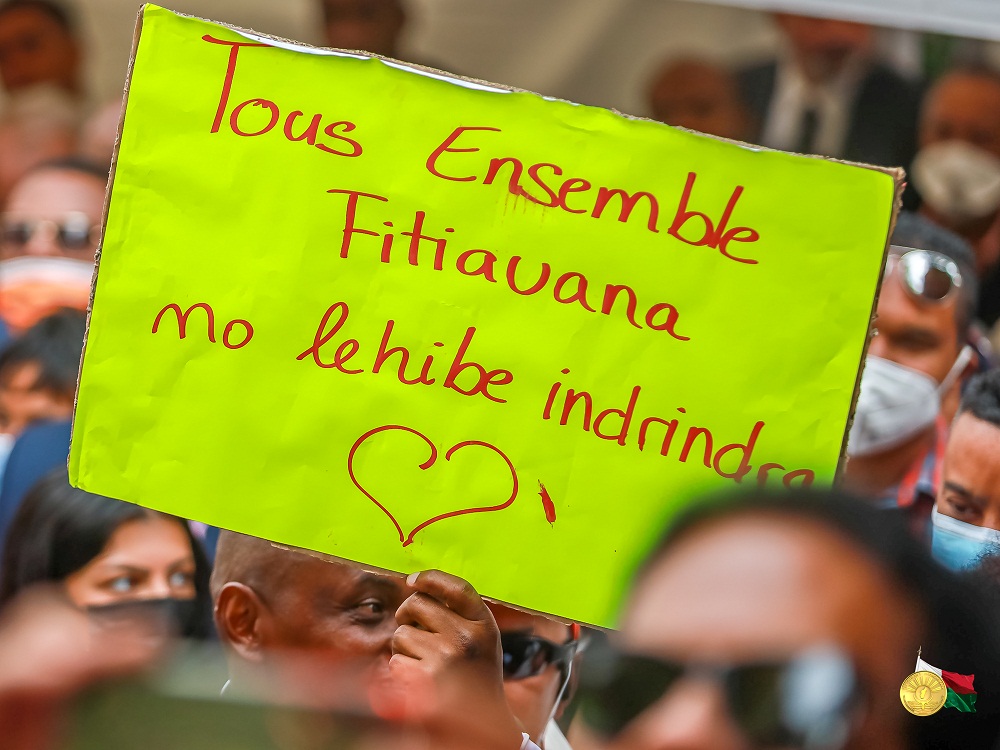 Tous Ensemble
Fitiavana
no lehibe indrindra